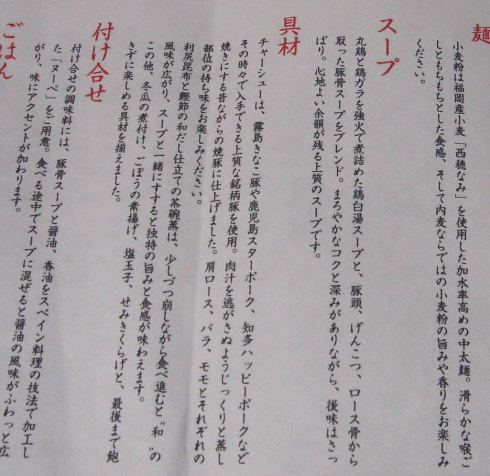 麺
小麦粉は福岡産小麦「西穂なみ」を使用した加水率高めの中太麺。滑らかな喉ご
しともちもちとした食感、そして内麦ならではの小麦粉の旨みや香りをお楽しみ
ください。
スープ
丸鶏と鶏ガラを強火で煮詰めた鶏白湯スープと、豚頭、げんこつ、ロース骨から
取った豚骨スープをブレンド。まろやかなコクと深みがありながら、後味はさっ
ぱり。心地よい余韻が残る上質のスープです。
具材
チャーシューは、霧島きなこ豚や鹿児島スターポーク、知多ハッピーポークなど
その時々で入手できる上質な銘柄豚を使用。肉汁を逃がさぬようじっくりと蒸し
焼きにする昔ながらの焼豚に仕上げました。肩ロース、バラ、モモとそれぞれの
部位の持ち味をお楽しみください。
利尻昆布と鰹節の和だし仕立ての茶碗蒸は、少しづつ崩しながら食べ進むと"和"の
風味が広がり、スープと一緒にすすると独特の旨みと食感が味わえます。
この他、冬瓜の煮付け、ごぼうの素揚げ、塩玉子、せみきくらげと、最後まで飽
きずに楽しめる具材を揃えました。
付け合せ
付け合せの調味料には、豚骨スープと醤油、香油をスペイン料理の技法で加工し
た「ヌーベ」をご用意。食べる途中でスープに混ぜると醤油の風味がふわっと広
がり、味にアクセントが加わります。
ごはん